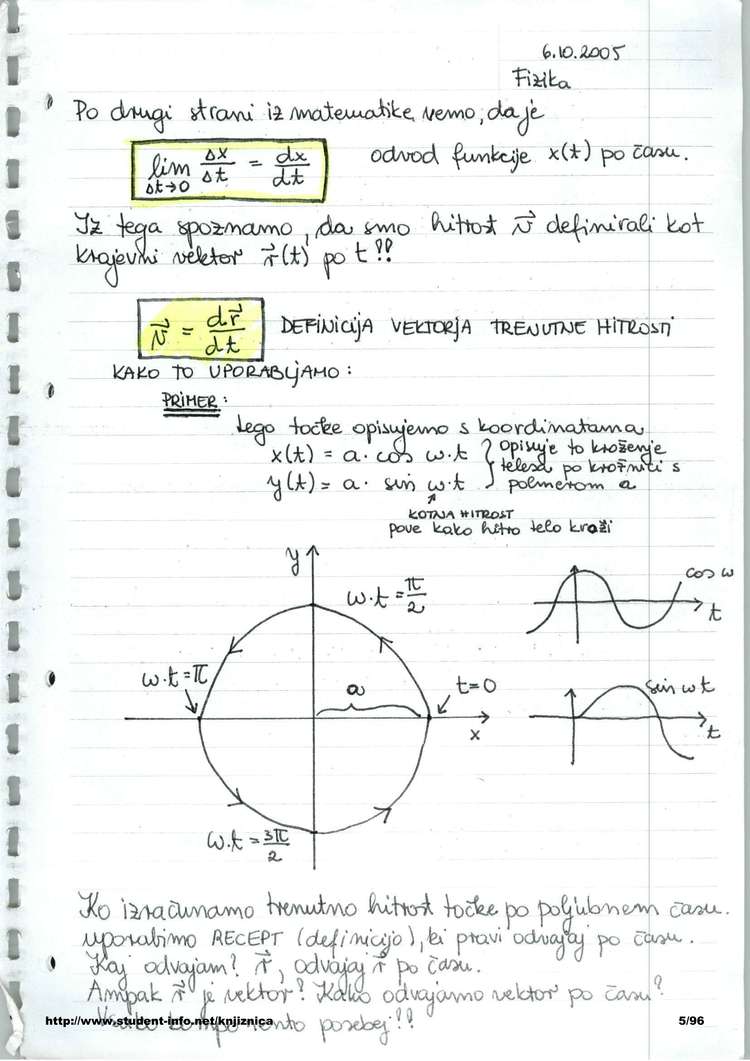 6.10.2005
Fizika
Po drugi strani iz matematike vemo, da je
lim Δt→0 Δx/Δt = dx/dt odvod funkcije x(t) po času.
Iz tega spoznamo, da smo hitrost v⃗ definirali kot
krajevni vektor r⃗(t) po t!!
v⃗ = dr⃗/dt DEFINICIJA VEKTORJA TRENUTNE HITROSTI
KAKO TO UPORABLJAMO:
PRIMER:
Lego točke opisujemo s koordinatama
x(t) = a · cos ω·t } opisuje to kroženje
telesa po krožnici s
y(t) = a · sin ω·t polmerom a
KOTNA HITROST
pove kako hitro telo kroži
y
ω·t = π/2
cos ω
t
ω·t = π
a
t=0
x
sin ωt
t
ω·t = 3π/2
Ko izračunamo trenutno hitrost točke po poljubnem času.
uporabimo RECEPT (definicijo), ki pravi odvajaj po času.
Kaj odvajam? r⃗, odvajaj r⃗ po času.
Ampak r⃗ je vektor? Kako odvajamo vektor po času?
Vsako komponento posebej!!
http://www.student-info.net/knjiznica
5/96